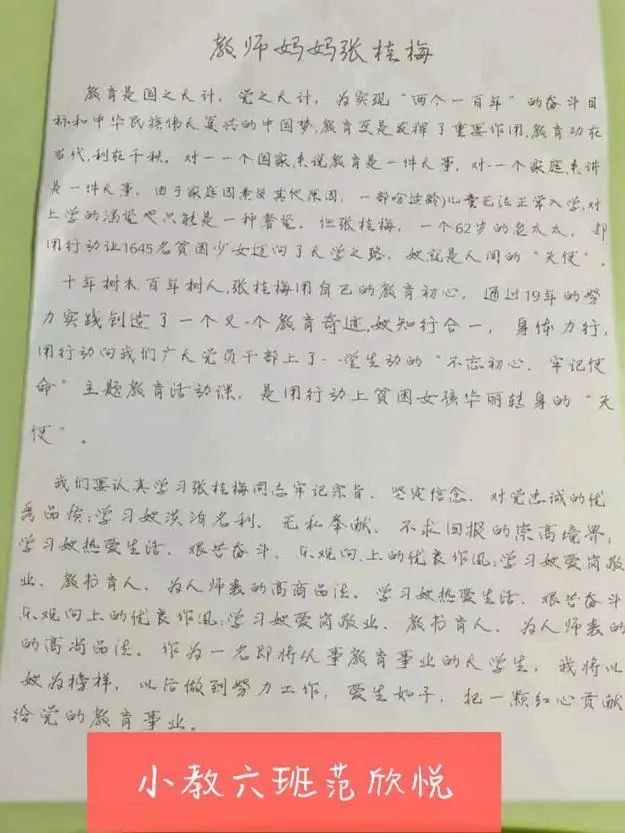 教师妈妈张桂梅
教育是国之大计，党之大计，为实现“两个一百年”的奋斗目
标和中华民族伟大复兴的中国梦,教育更是发挥了重要作用,教育功在
当代,利在千秋。对一一个国家,来说教育是一件大事，对一个家庭,来讲
是一件大事。由于家庭因素及其他原因，一部分适龄)儿童无法正常入学,对
上学的渴望也只能是一种奢望。但张桂梅，一个62岁的老太太，却
用行动让1645名贫困少女迈向了大学之路，她就是人间的“天使”。
十年树木百年树人,张桂梅用自己的教育初心，通过19年的努
力实践创造了一个又一个教育奇迹,她知行合一，身体力行,
用行动向我们广大党员干部上了一堂生动的“不忘初心、牢记使
命”主题教育活动课，是用行动上贫困女孩华丽转身的“天
使”。
我们要认真学习张桂梅同志牢记宗旨、坚定信念、对党忠诚的优
秀品质;学习她淡泊名利、无私奉献、不求回报的崇高境界;
学习她热爱生活、艰苦奋斗、乐观向上的优良作风;学习她爱岗敬
业、教书育人、为人师表的高商品法。学习她热爱生活、艰苦奋斗
乐观向上的优良作风;学习她爱岗敬业、教书育人、为人师表的
的高尚品法。作为一名即将从事教育事业的大学生，我将以
她为榜样，以后做到努力工作，爱生如子，把一颗红心贡献
给党的教育事业。
小教六班范欣悦